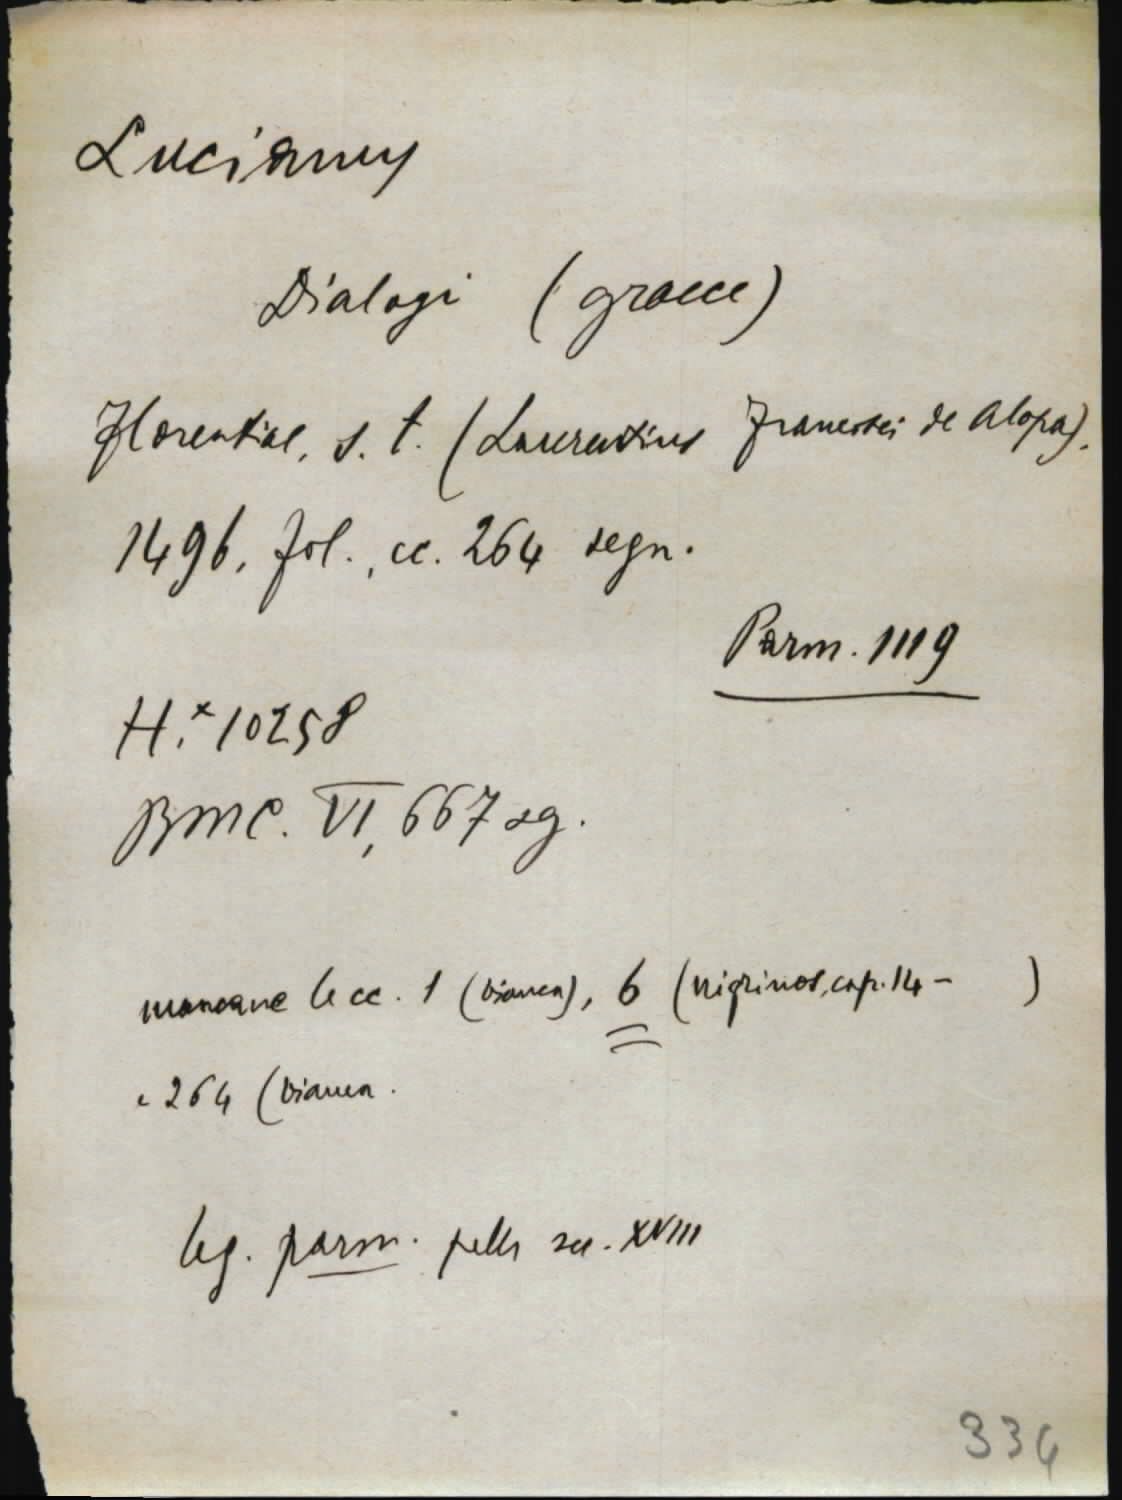 Lucianus
Dialogi (graece)
Florentiae, s. t. (Laurentius Francisci de Alopa),
1496, fol., cc. 264 segn.
Parm. 1119
H.* 10258
BMC. VI, 667 sg.
mancano le cc. 1 (bianca), 6 (Nigrinos, cap. 14 - )
e 264 (bianca.
leg. parm. pelle sec. XVIII
334